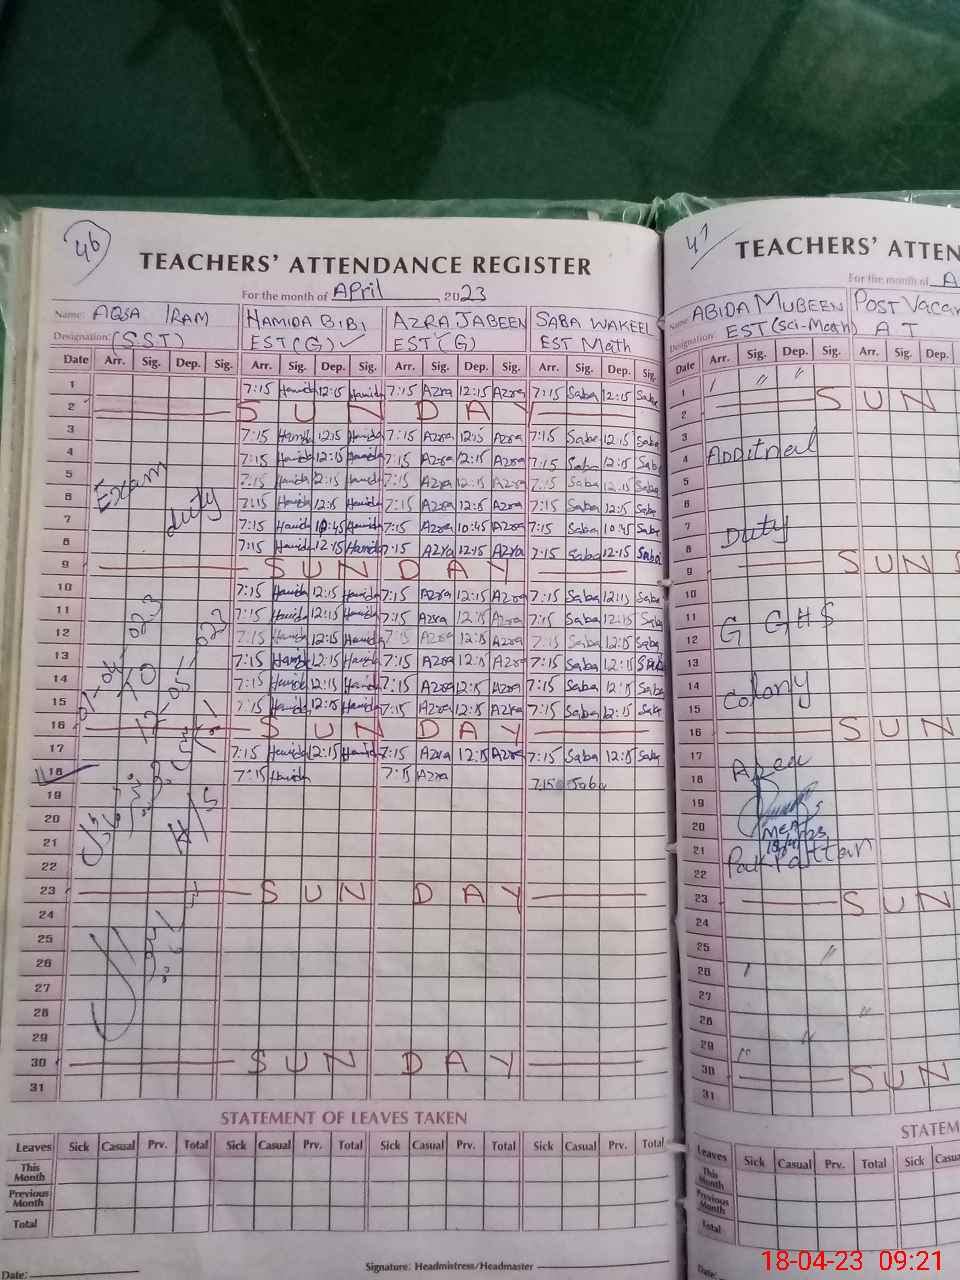 46
TEACHERS' ATTENDANCE REGISTER
For the month of April 2023
Name: AQSA IRAM HAMIDA BIBI AZRA JABEEN SABA WAKEEL
Designation: (S.ST) EST(G) ✓ EST(G) EST Math
Date Arr. Sig. Dep. Sig. Arr. Sig. Dep. Sig. Arr. Sig. Dep. Sig. Arr. Sig. Dep. Sig.
1 7:15 Hamida 12:15 Hamida 7:15 Azra 12:15 Azra 7:15 Saba 12:15 Saba
2 SUNDAY
3 7:15 Hamida 12:15 Hamida 7:15 Azra 12:15 Azra 7:15 Saba 12:15 Saba
4 7:15 Hamida 12:15 Hamida 7:15 Azra 12:15 Azra 7:15 Saba 12:15 Saba
5 7:15 Hamida 12:15 Hamida 7:15 Azra 12:15 Azra 7:15 Saba 12:15 Saba
6 7:15 Hamida 12:15 Hamida 7:15 Azra 12:15 Azra 7:15 Saba 12:15 Saba
7 7:15 Hamida 10:45 Hamida 7:15 Azra 10:45 Azra 7:15 Saba 10:45 Saba
8 7:15 Hamida 12:15 Hamida 7:15 Azra 12:15 Azra 7:15 Saba 12:15 Saba
Exam duty
9 SUNDAY
10 7:15 Hamida 12:15 Hamida 7:15 Azra 12:15 Azra 7:15 Saba 12:15 Saba
11 7:15 Hamida 12:15 Hamida 7:15 Azra 12:15 Azra 7:15 Saba 12:15 Saba
12 7:15 Hamida 12:15 Hamida 7:15 Azra 12:15 Azra 7:15 Saba 12:15 Saba
13 7:15 Hamida 12:15 Hamida 7:15 Azra 12:15 Azra 7:15 Saba 12:15 Saba
14 7:15 Hamida 12:15 Hamida 7:15 Azra 12:15 Azra 7:15 Saba 12:15 Saba
15 7:15 Hamida 12:15 Hamida 7:15 Azra 12:15 Azra 7:15 Saba 12:15 Saba
16 SUNDAY
17 7:15 Hamida 12:15 Hamida 7:15 Azra 12:15 Azra 7:15 Saba 12:15 Saba
18 7:15 Hamida 7:15 Azra 7:15 Saba
19
20
21
22
23 SUNDAY
24
25
26
27
28
29
30 SUNDAY
31
STATEMENT OF LEAVES TAKEN
Leaves Sick Casual Prv. Total Sick Casual Prv. Total Sick Casual Prv. Total Sick Casual Prv. Total
This Month
Previous Month
Total
Date:
Signature: Headmistress/Headmaster
47
TEACHERS' ATTEN
For the month of A
Name: ABIDA MUBEEN POST Vacan
Designation: EST(Sci-Math) A T
Date Arr. Sig. Dep. Sig. Arr. Sig. Dep.
1
2 SUN
3
4 Additnal
5
6
7 Duty
8
9 SUN S
10
11 G GHS
12
13
14 colony
15
16 SUN
17 Area
18
19
20
21
18/4/23
22 Pak-Pattan
23 SUN
24
25
26
27
28
29
30 SUN
31
STATEM
Leaves Sick Casual Prv. Total Sick Casua
This Month
Previous Month
Total
Date:
18-04-23 09:21